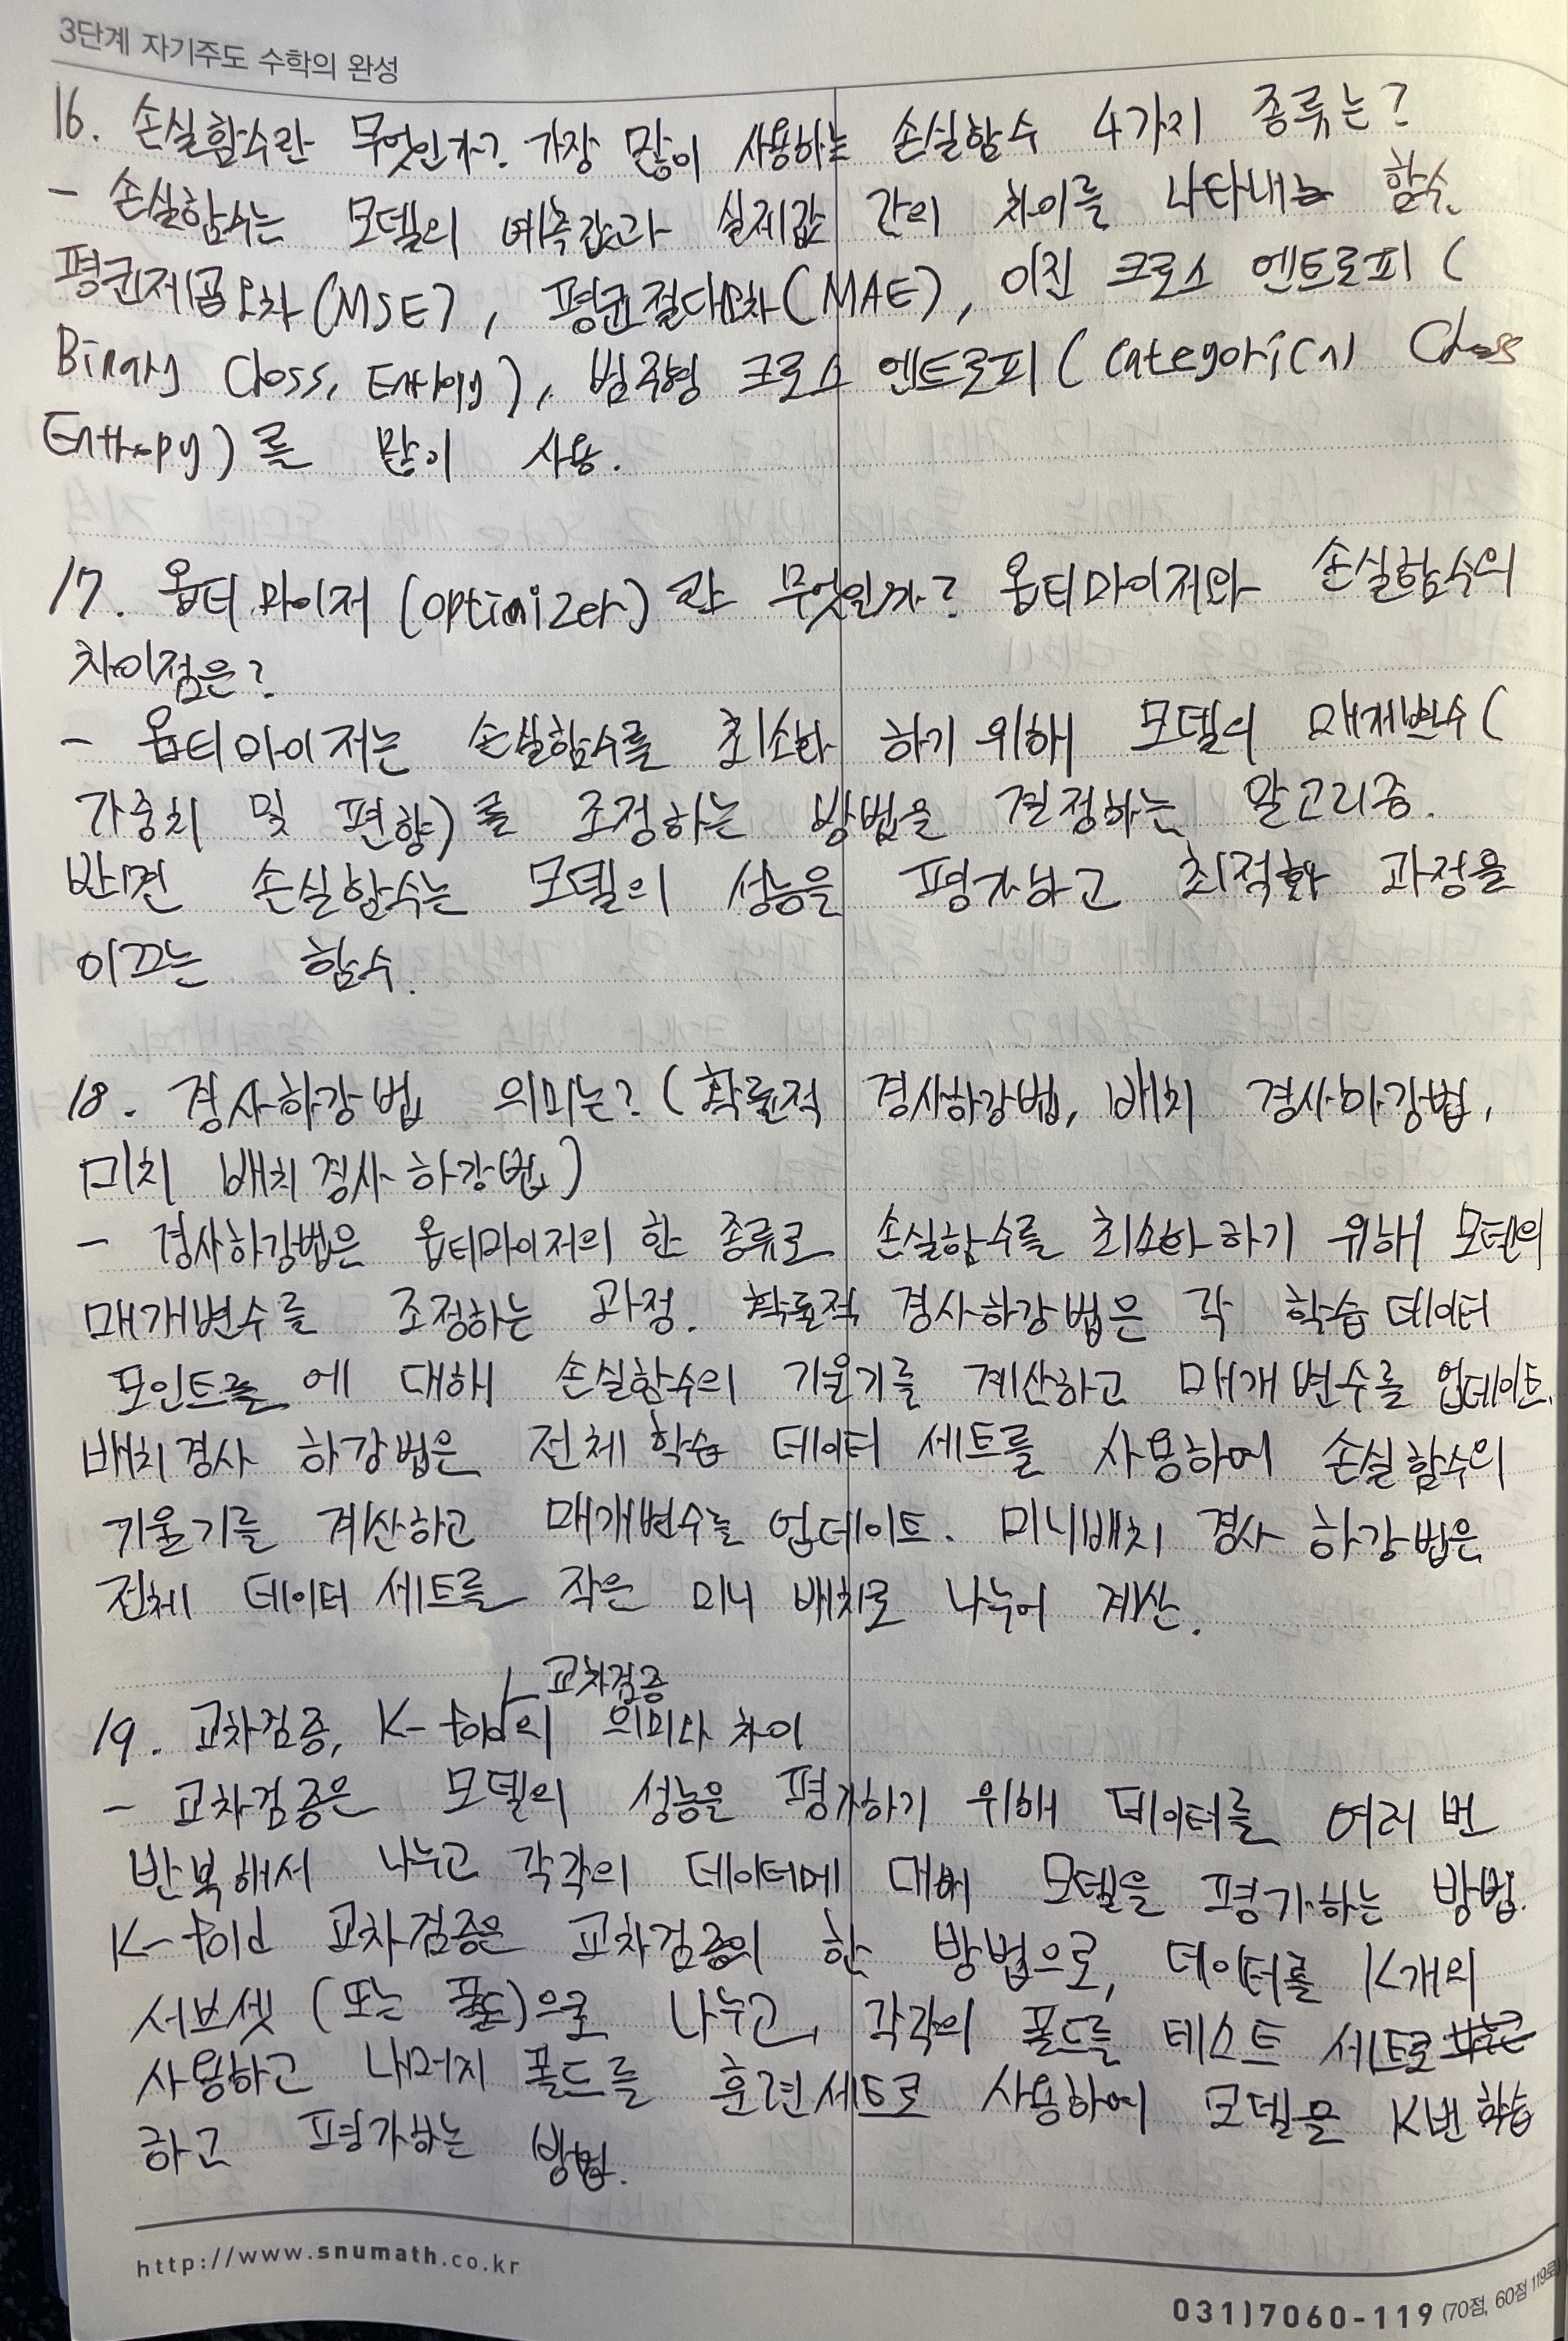 3단계 자기주도 수학의 완성
16. 손실함수란 무엇인가? 가장 많이 사용하는 손실함수 4가지 종류는?
- 손실함수는 모델의 예측값과 실제값 간의 차이를 나타내는 함수.
평균제곱오차(MSE), 평균절대오차(MAE), 이진 크로스 엔트로피(
Binary Closs, Entropy), 범주형 크로스 엔트로피(Categorical Closs
Enthropy)를 많이 사용.
17. 옵티마이저(optimizer)란 무엇인가? 옵티마이저와 손실함수의
차이점은?
- 옵티마이저는 손실함수를 최소화 하기 위해 모델의 매개변수(
가중치 및 편향)를 조정하는 방법을 결정하는 알고리즘.
반면 손실함수는 모델의 성능을 평가하고 최적화 과정을
이끄는 함수.
18. 경사하강법 의미는? (확률적 경사하강법, 배치 경사하강법,
미치 배치 경사하강법)
- 경사하강법은 옵티마이저의 한 종류로 손실함수를 최소화 하기 위해 모델의
매개변수를 조정하는 과정. 확률적 경사하강법은 각 학습 데이터
포인트들에 대해 손실함수의 기울기를 계산하고 매개변수를 업데이트.
배치경사 하강법은 전체 학습 데이터 세트를 사용하여 손실함수의
기울기를 계산하고 매개변수를 업데이트. 미니배치 경사 하강법은
전체 데이터 세트를 작은 미니 배치로 나누어 계산.
교차검증
19. 교차검증, K-fold의 의미와 차이
- 교차검증은 모델의 성능을 평가하기 위해 데이터를 여러 번
반복해서 나누고 각각의 데이터에 대해 모델을 평가하는 방법.
K-fold 교차검증은 교차검증의 한 방법으로, 데이터를 K개의
서브셋 (또는 폴드)으로 나누고, 각각의 폴드를 테스트 세트로
사용하고 나머지 폴드를 훈련세트로 사용하여 모델을 K번 학습
하고 평가하는 방법.
http://www.snumath.co.kr
031)7060-119 (70점, 60점 119로)